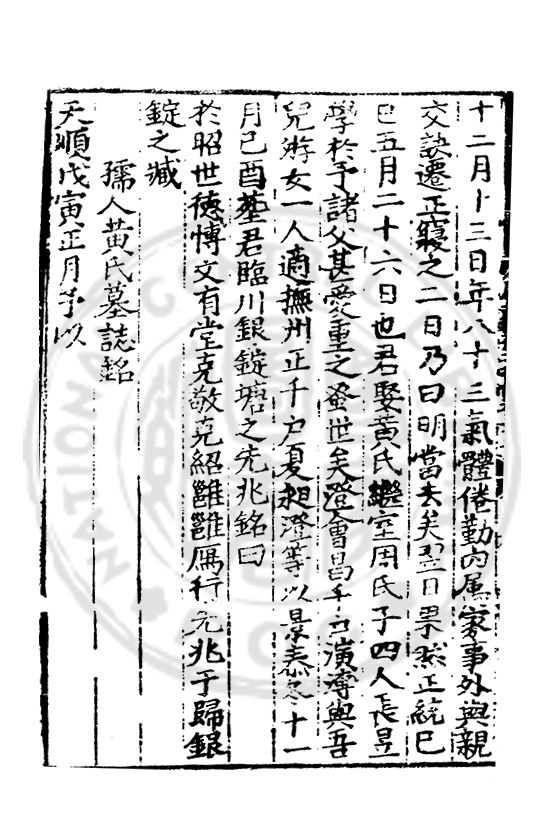 十二月十三日年八十三氣體倦勤内屬家事外與親
交訣遷正寢之二日乃曰明當去矣翌日果然正統己
巳五月二十六日也君娶黃氏繼室周氏子四人長昱
學於予諸父甚愛重之蚤世矣澄會昌千演溥與吾
兒游女一人適撫州正千户夏昶澄等以景泰十一
月己酉塟君臨川銀錠塘之先兆銘曰
於昭世德博文有堂克敬克紹雝雝鴈行先兆于歸銀
錠之藏
孺人黃氏墓誌銘
天順戊寅正月予以